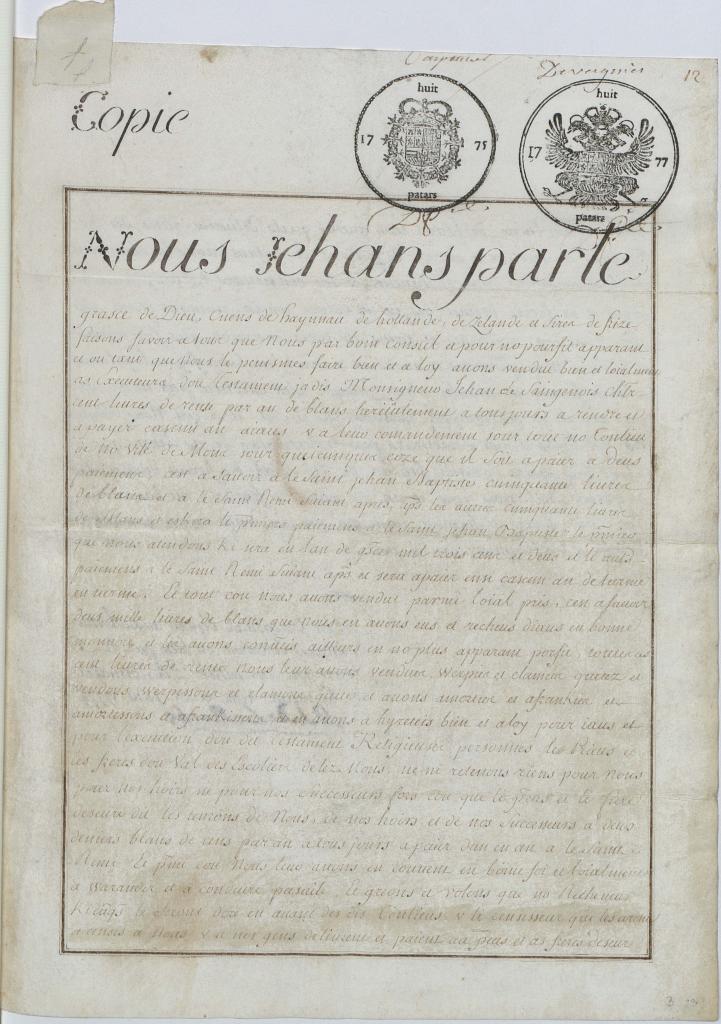 Devergnies
12
Copie
huit
17 75
patars
huit
17 77
patars
Nous Jehans par le
grasce de Dieu, Cuens de haynnau de hollande, de Zelande et Sires de frize
faisons savoir a tous que Nous par boin conseil et pour no pourfit apparant
et ou tant que Nous le peuismes faire bien et a loy avons vendu bien et loialment
as Executeurs dou testament jadis Monsigneur Jehan de Saingenois
cent livres de rente par an de blans a tous jours a rendre et
a payer cascun an a leur comandement sour tout no
de no Ville de Mons sour quelcumques coze que il soit a paier a deus
paiemens, cest a savoir a le Saint Jehan Baptiste cuinquante livres
de blans et a le Saint Remi suiant apries, les autres cuinquante livres
de blans et eskera le premiers paiemens a le Saint Jehan Baptiste le
que nous atendons ki sera en lan de mil trois cens et deus et li
paiemens a le Saint Remi suiant et sera a paier enu cascun an de terme
en terme. Et tout cou nous avons vendut parmi loial pris, cest a savoir
deus mille livres de blans que nous en avons eus et recheus en bonne
monnoie et les avons ailleurs en no plus apparant
cent livres de rente nous leur avons vendues, werpies et
vendons, werpessons et clamons quite et avons amorties et afrankies et
amortissons et afrankissons et en avons bien et a loy pour iaus et
pour l'execution dou dit testament Religieuses personnes les et
les freres dou Val des Escoliers delez Mons, ne ni retenons riens pour nous
pour nos hoirs ne pour nos Successeurs fors cou que le et li frere
deseure dit les tenrons de Nous, de nos hoirs et de nos Successeurs a deus
deniers blans de cens par an a tous jours a paier dan en an a le Saint
Remi. Et cou Nous leur avons en couvent en bonne foi et loialment
a warandir et a conduire Et greons et volons que no
dore en avant des dis v le censisseur que les aront
a censes a Nous v a nos gens delivrent et paient au et as freres deseur